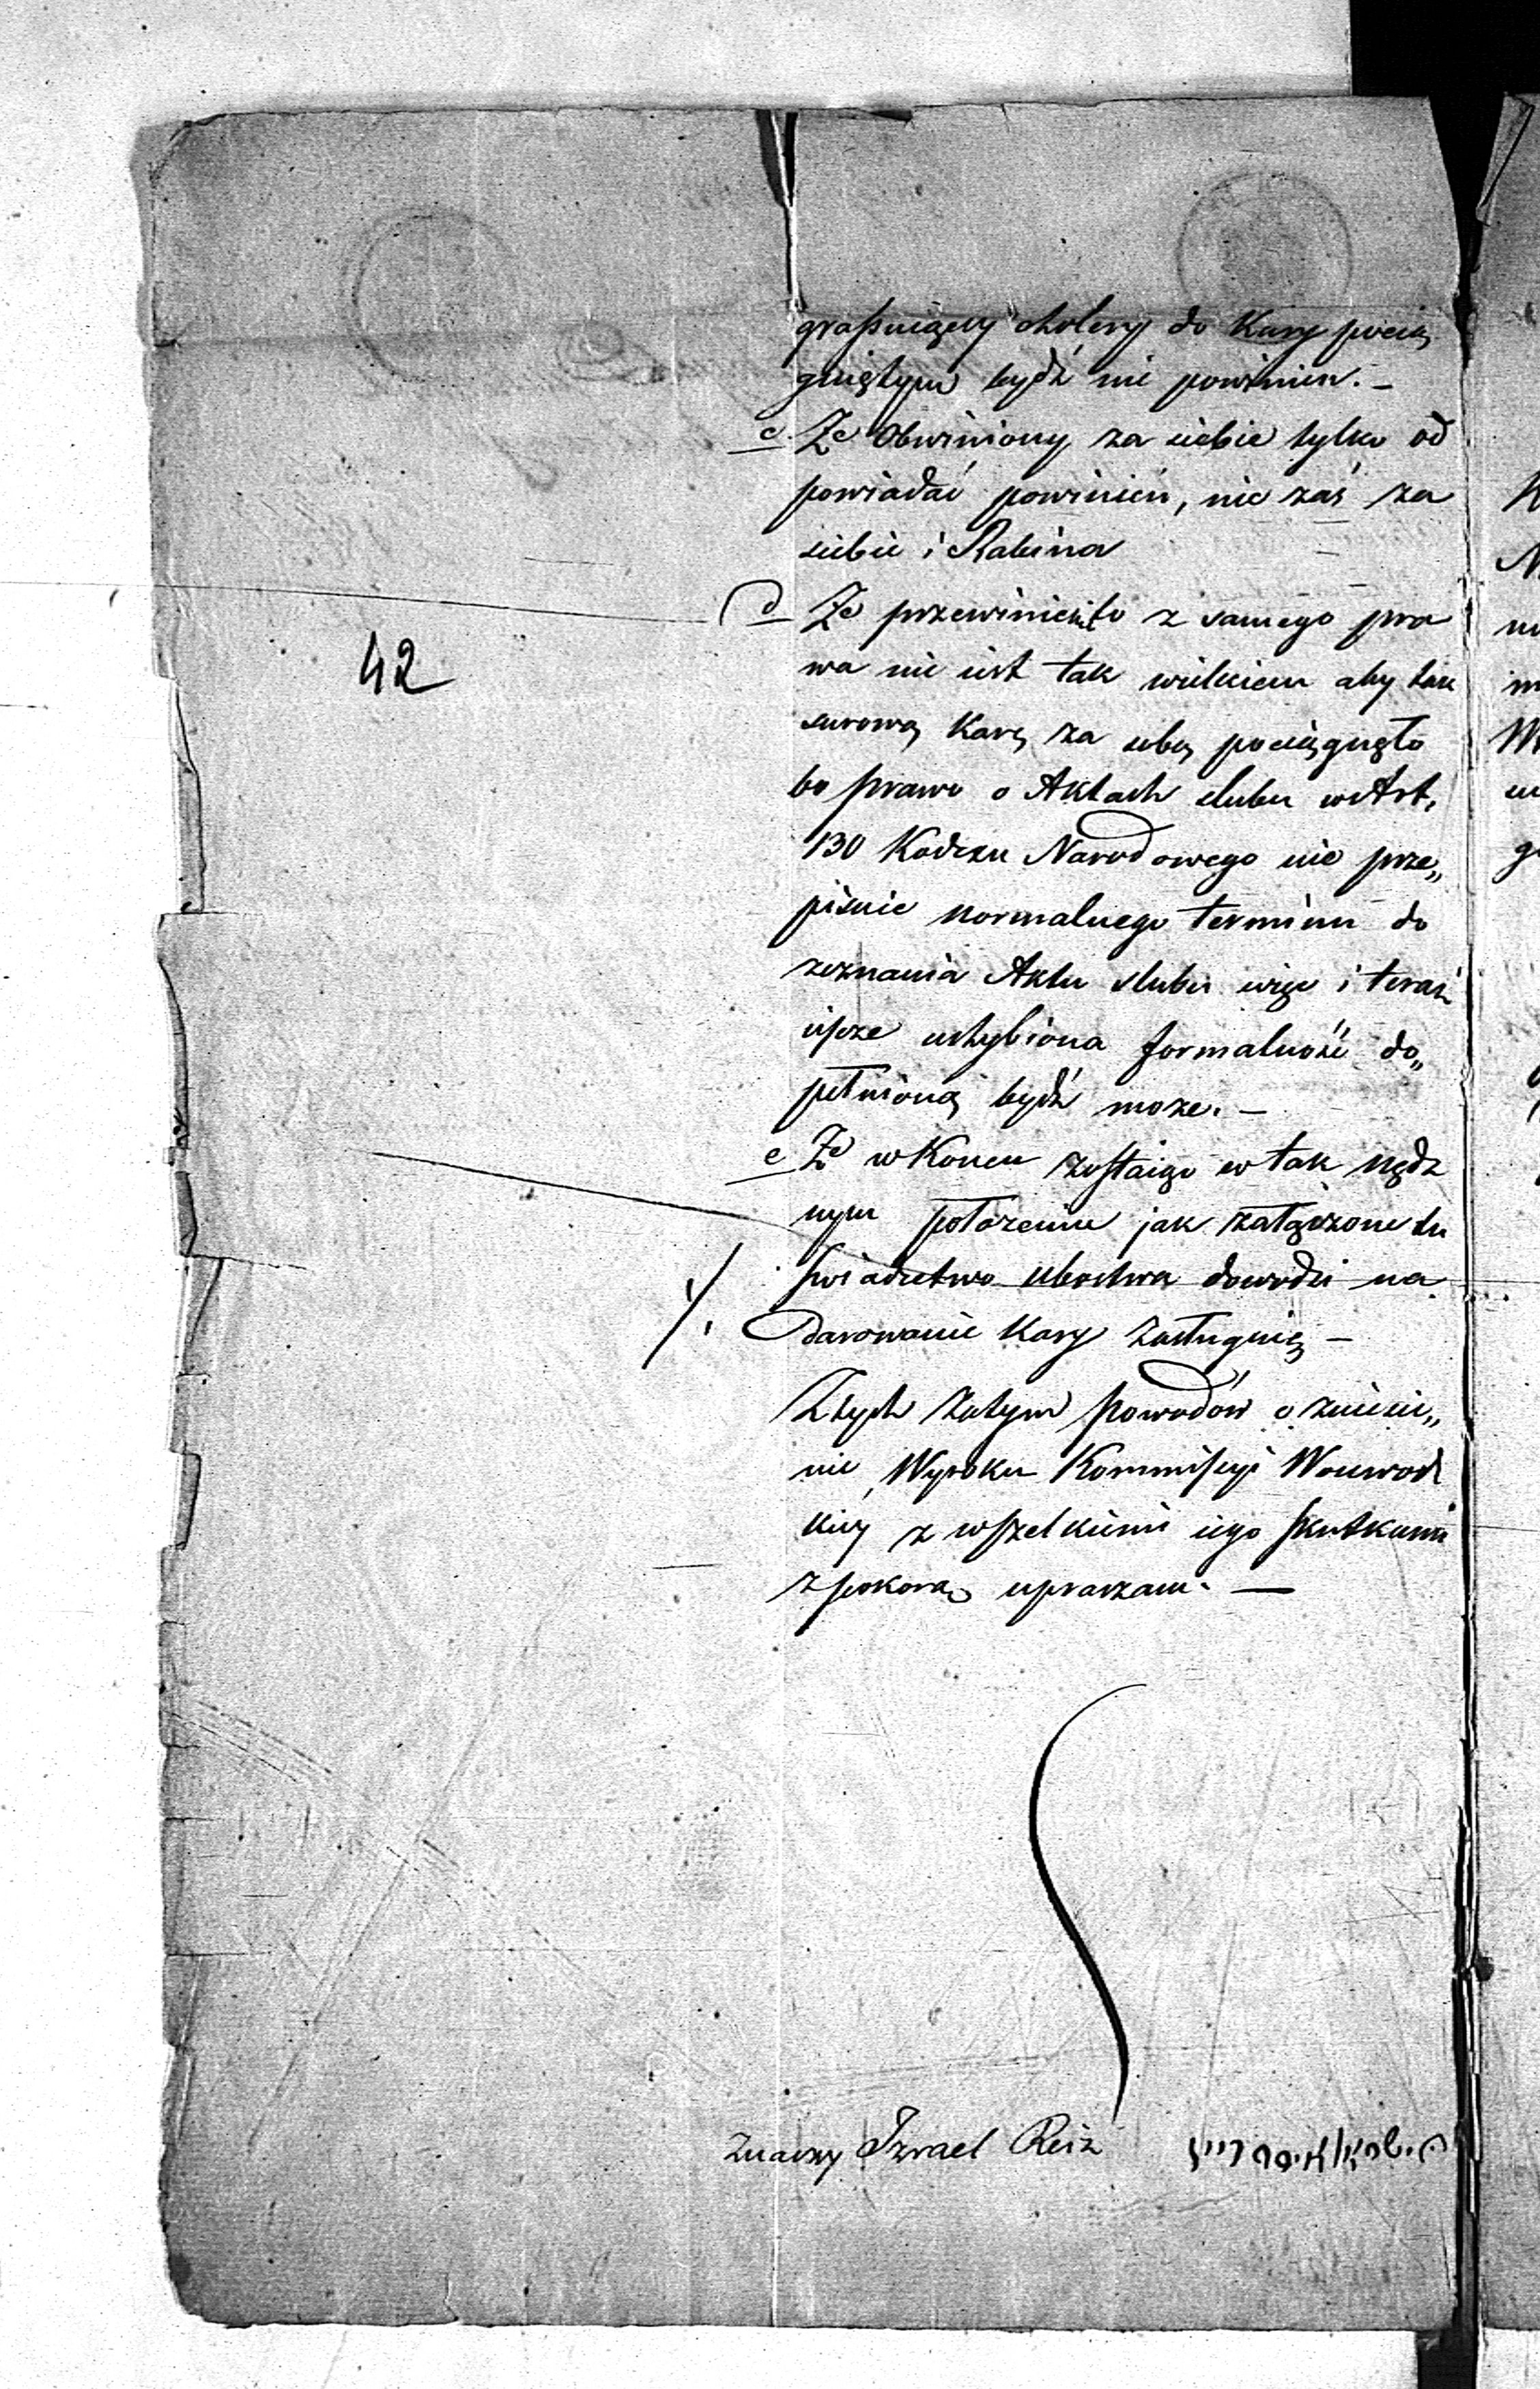 graßuiący cholery do Kary pocią
gniętym bydź nie powinien. –
c. Że Obwiniony za siebie tylko od
powiadać powinien, nie zaś za
siebie i Rabina
d Że przewinienie to z samego pra
wa nie iest tak wielkiem aby tak
surową Karę za sobą pociągnęło
bo prawo o Aktach slubu w Art.
130 Kodexu Narodowego nie prze„
pisuie normalnego terminu do
zeznania Aktu slubu więc i teraz
ieszcze uchybiona formalność do„
pełnioną bydź może. –
e Że w Koncu zostaiąc w tak nędz
nym położeniu jak załączone tu
swiadectwo ubostwa dowodzi na
darowanie Kary zasługuię –
Z tych zatym powodów o zniesie„
nie Wyroku Kommißyi Woiewod
kiey z wszelkiemi iego skutkami
z pokorą upraszam. —
42
Znaczy Izrael Reiz